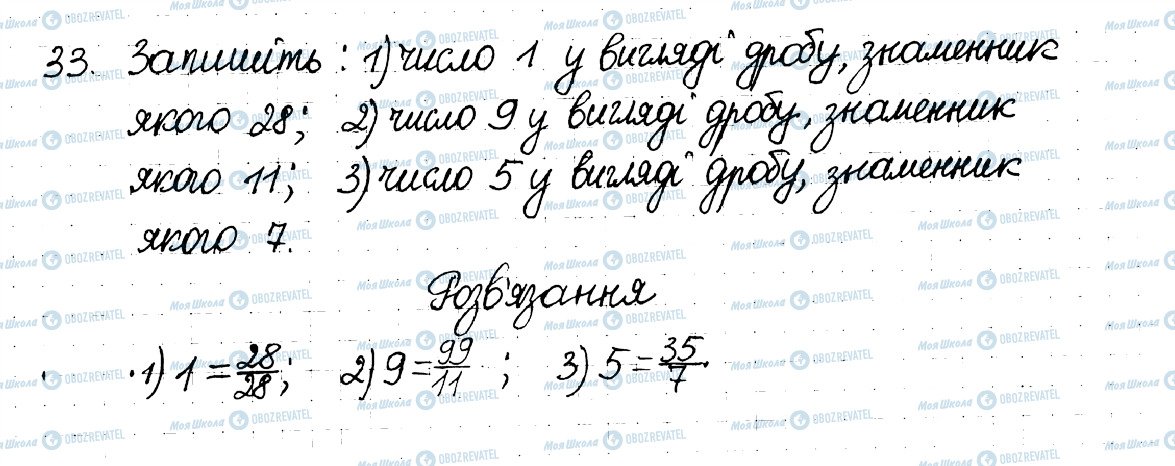 33. Запишіть: 1) число 1 у вигляді дробу, знаменник
якого 28; 2) число 9 у вигляді дробу, знаменник
якого 11; 3) число 5 у вигляді дробу, знаменник
якого 7.
Розв'язання
1) 1 = 28/28; 2) 9 = 99/11; 3) 5 = 35/7.